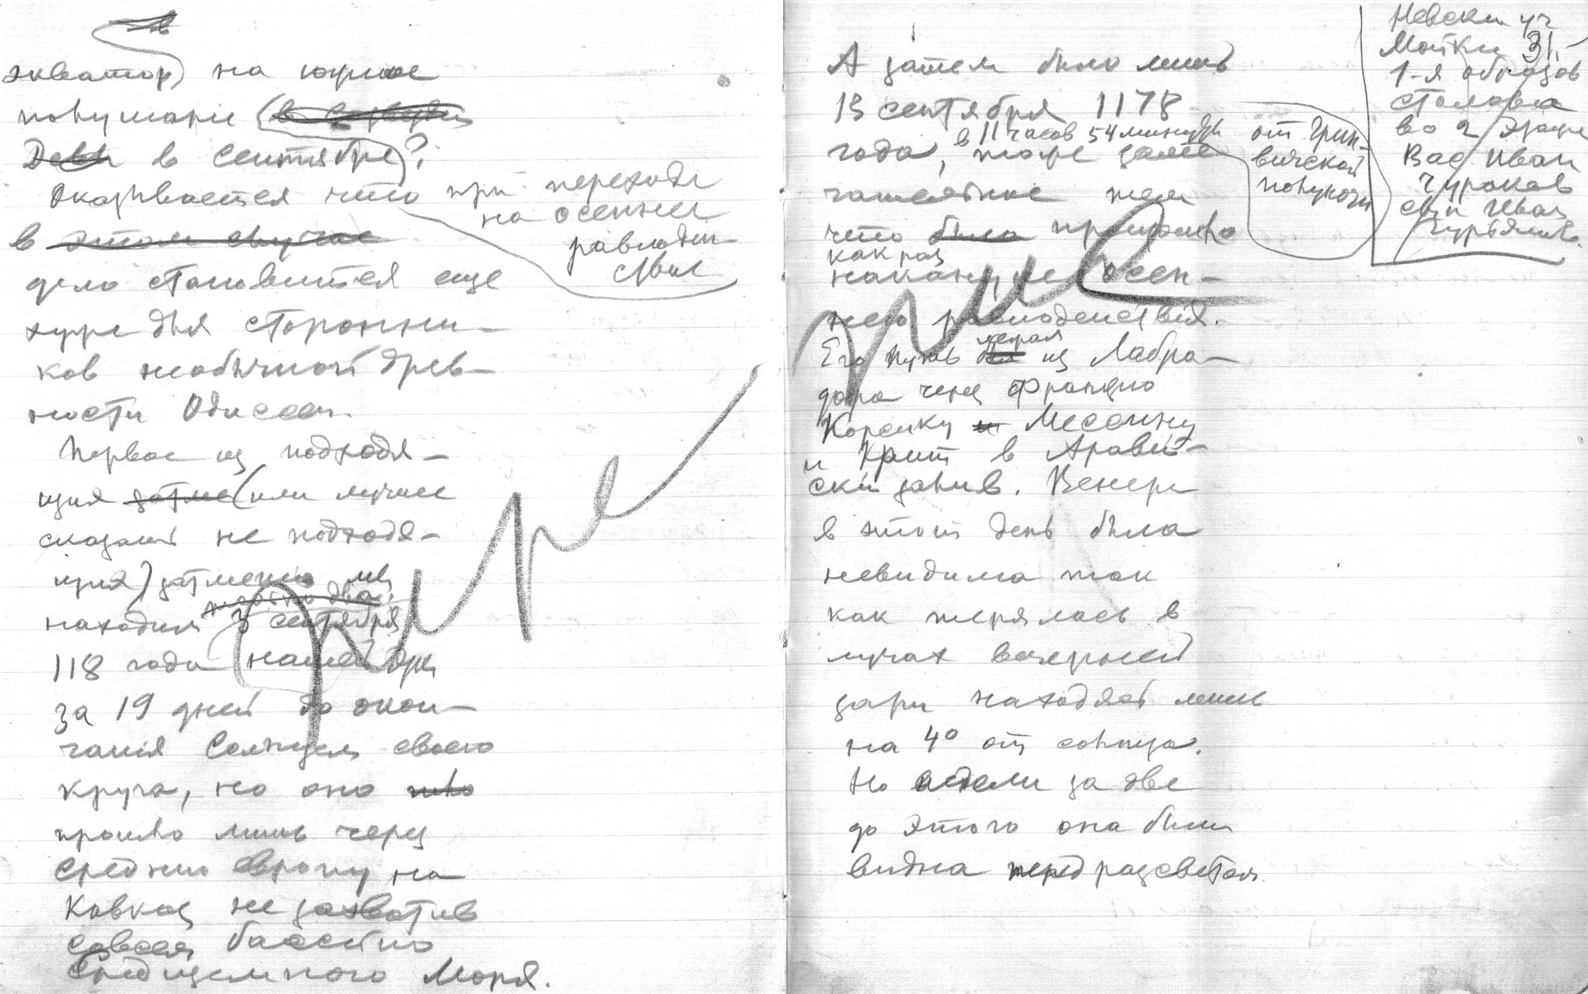 экватор) на южное
полушарие (в
День в сентябре?
Оказывается что при переходе
на осеннее
равноден-
ствие
в этом случае
дело становится еще
хуже для сторонни-
ков необычной древ-
ности Одиссеи.
Первое из подходя-
щих затме (или лучше
сказать не подходя-
щих) затмение мы
находим 3 сентября
118 года нашей эры
за 19 дней до окон-
чания Солнцем своего
круга, но оно
прошло лишь через
среднюю Европу на
Кавказ не захватив
совсем бассейно
Средиземного Моря.
А затем было лишь
13 сентября 1178
года, в 11 часов 54 минуты
от Грин-
вичской
полуночи
тоже
что было пришлось
как раз
накануне осен-
него равноденствия.
Его путь из Лабра-
дора через Францию
Корсику и Мессину
и Крит в Аравий-
ский залив. Венера
в этот день была
невидима так
как терялась в
лучах вечерней
зари находясь лишь
на 4° от солнца.
Но недели за две
до этого она была
видна перед рассветом
Невский уч
Мойки 31,
1-я образцов
столовая
во 2 этаже
Вас Иван
Чураков
сын Иван